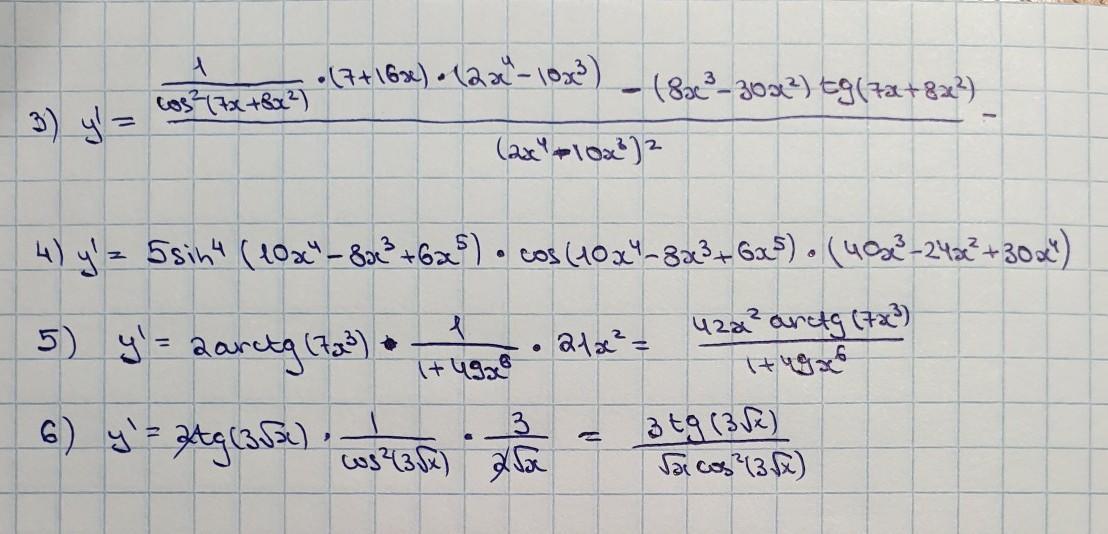 3) y' = (1/cos²(7x+8x²) · (7+16x) · (2x⁴ - 10x³) - (8x³ - 30x²) tg(7x+8x²)) / (2x⁴ - 10x³)² -
4) y' = 5sin⁴ (10x⁴ - 8x³ + 6x⁵) · cos(10x⁴ - 8x³ + 6x⁵) · (40x³ - 24x² + 30x⁴)
5) y' = 2arctg(7x³) · 1/(1+49x⁶) · 21x² = 42x² arctg(7x³)/(1+49x⁶)
6) y' = 2tg(3√x) · 1/cos²(3√x) · 3/(2√x) = 3tg(3√x)/(√x cos²(3√x))